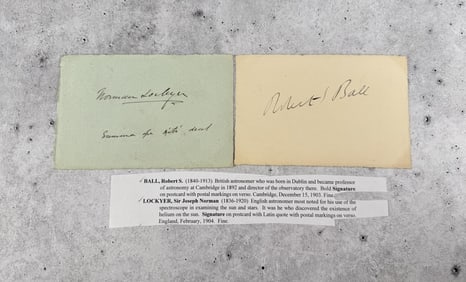 Norman Lockyer
Robert S Ball
BALL, Robert S. (1840-1913) British astronomer who was born in Dublin and became professor
of astronomy at Cambridge in 1892 and director of the observatory there. Bold Signature
on postcard with postal markings on verso. Cambridge, December 15, 1903. Fine.
LOCKYER, Sir Joseph Norman (1836-1920) English astronomer most noted for his use of the
spectroscope in examining the sun and stars. It was he who discovered the existence of
helium on the sun. Signature on postcard with Latin quote with postal markings on verso.
England, February, 1904. Fine.